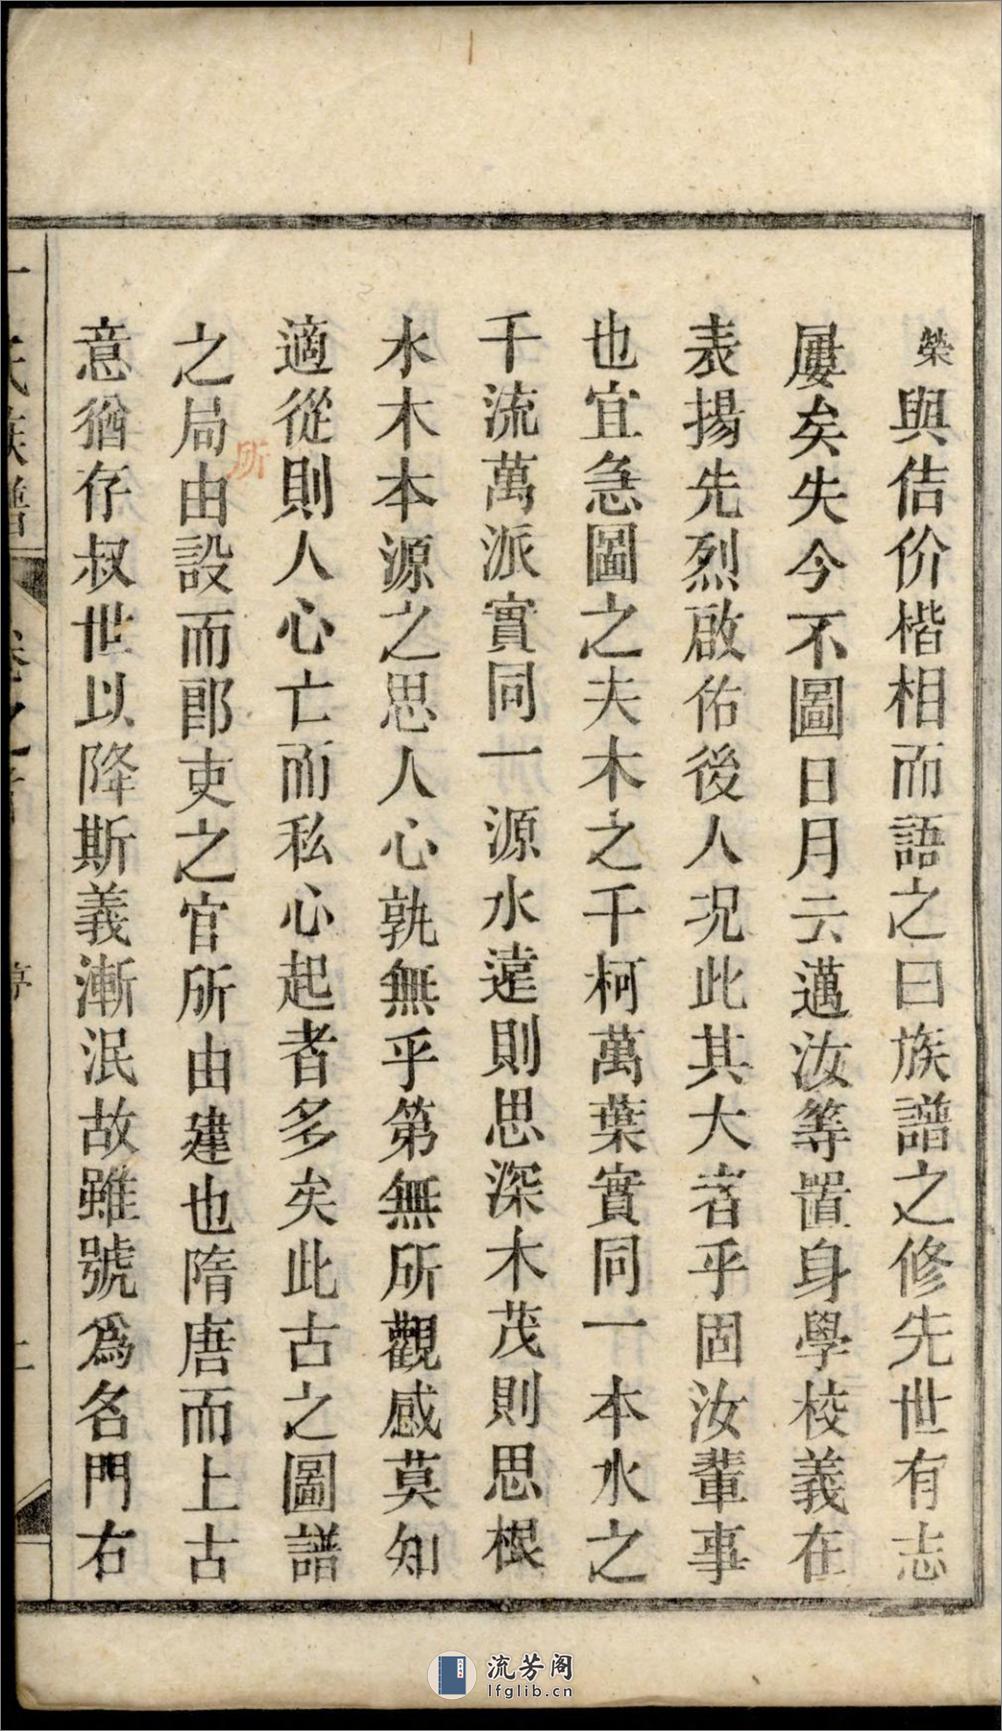 榮與佶价楷相而語之曰族譜之修先世有志
屢矣失今不圖日月云邁汝等置身學校義在
表揚先烈啟佑後人况此其大者乎固汝輩事
也宜急圖之夫木之千柯萬葉實同一本水之
千流萬派實同一源水遠則思深木茂則思根
水木本源之思人心孰無乎第無所觀感莫知
適從則人心亡而私心起者多矣此古之圖譜
所
之局由設而郎吏之官所由建也隋唐而上古
意猶存叔世以降斯義漸泯故雖號為名門右
氏族譜
流芳阁
lfglib.cn